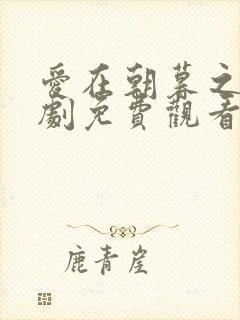 愛在朝暮之
劇免費觀看
鹿青崖